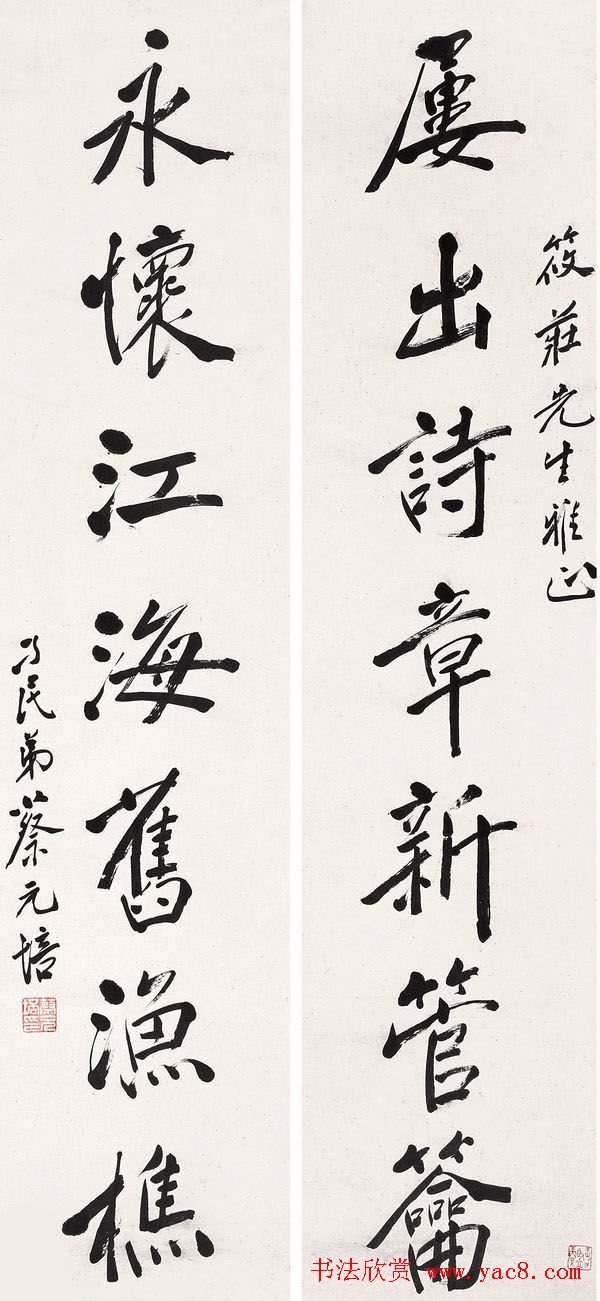 筱莊先生雅正
屢出詩章新管籥
永懷江海舊漁樵
孑民弟蔡元培
书法欣赏 www.yac8.com